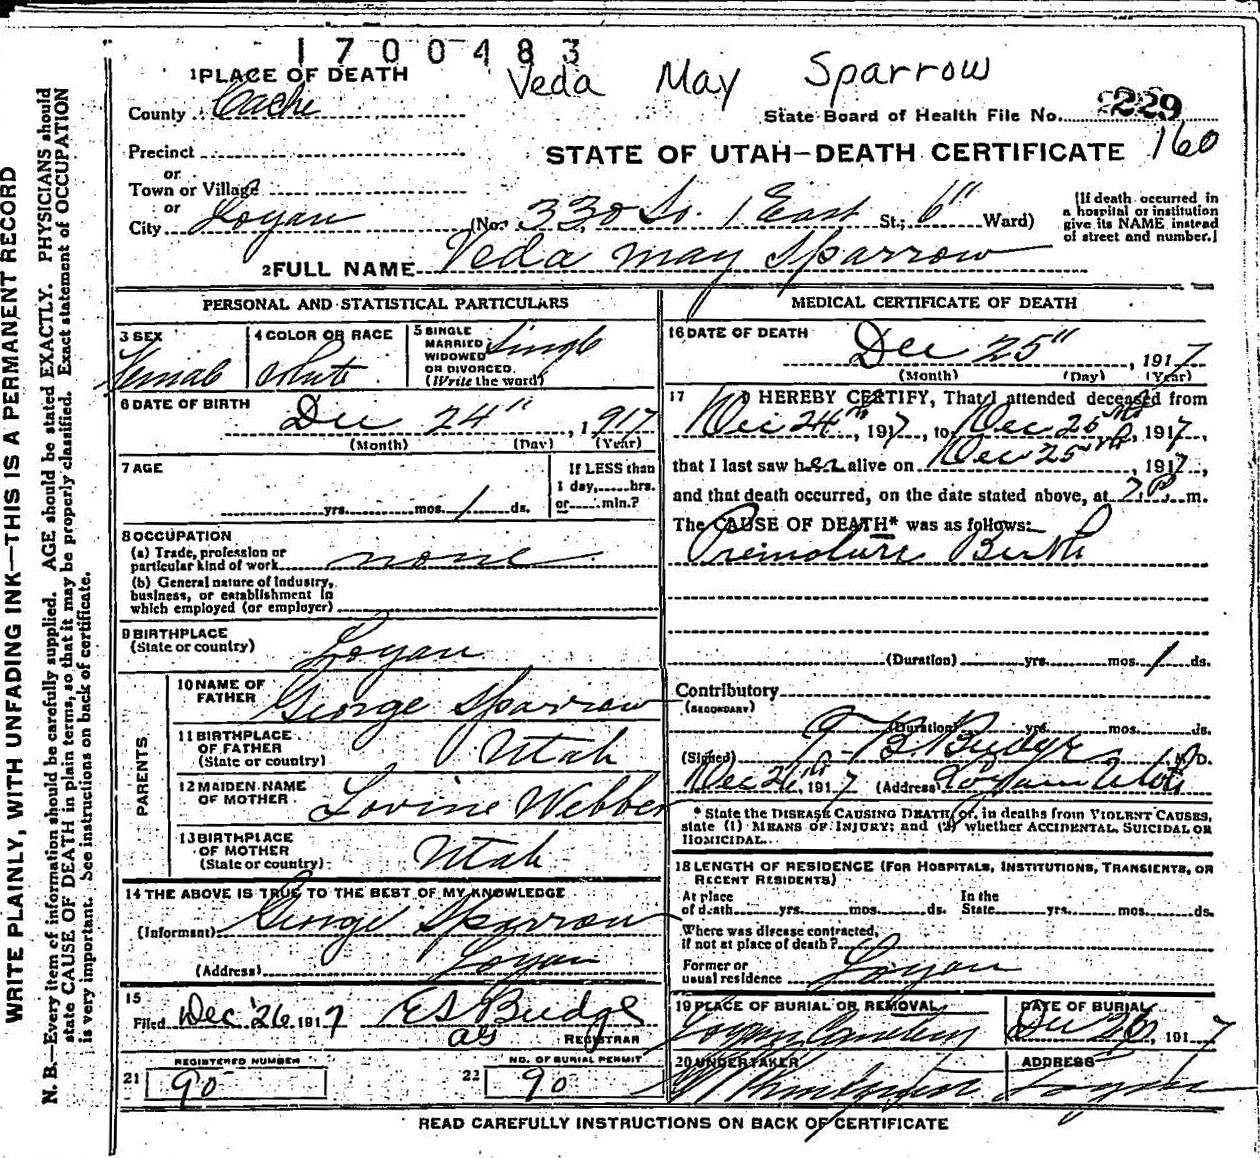 1700483
Veda May Sparrow
1 PLACE OF DEATH
County Cache
State Board of Health File No. 229
Precinct
STATE OF UTAH—DEATH CERTIFICATE 160
or
Town or Village
or
City Logan (No. 330 So. 1 East St.; 6" Ward)
[If death occurred in
a hospital or institution
give its NAME instead
of street and number.]
2 FULL NAME Veda May Sparrow
PERSONAL AND STATISTICAL PARTICULARS
3 SEX Female
4 COLOR OR RACE White
5 SINGLE
MARRIED
WIDOWED
OR DIVORCED.
(Write the word) Single
6 DATE OF BIRTH
Dec 24", 1917
(Month) (Day) (Year)
7 AGE
yrs. mos. 1 ds.
If LESS than
1 day, hrs.
or min.?
8 OCCUPATION
(a) Trade, profession or
particular kind of work none
(b) General nature of Industry,
business, or establishment in
which employed (or employer)
9 BIRTHPLACE
(State or country) Logan
PARENTS
10 NAME OF
FATHER George Sparrow
11 BIRTHPLACE
OF FATHER
(State or country) Utah
12 MAIDEN NAME
OF MOTHER Lovine Webber
13 BIRTHPLACE
OF MOTHER
(State or country) Utah
14 THE ABOVE IS TRUE TO THE BEST OF MY KNOWLEDGE
(Informant) George Sparrow
(Address) Logan
15
Filed Dec 26 1917 E S Budge
REGISTRAR
REGISTERED NUMBER
21 90
NO. OF BURIAL PERMIT
22 90
MEDICAL CERTIFICATE OF DEATH
16 DATE OF DEATH
Dec 25", 1917
(Month) (Day) (Year)
17 I HEREBY CERTIFY, That I attended deceased from
Dec 24th, 1917, to Dec 25th, 1917,
that I last saw her alive on Dec 25th, 1917,
and that death occurred, on the date stated above, at 7 P. m.
The CAUSE OF DEATH* was as follows:
Premature Birth
(Duration) yrs. mos. 1 ds.
Contributory
(SECONDARY)
(Duration) yrs. mos. ds.
(Signed) B. Budge M. D.
Dec 26th, 1917 (Address) Logan Utah
* State the DISEASE CAUSING DEATH, or, in deaths from VIOLENT CAUSES,
state (1) MEANS OF INJURY; and (2) whether ACCIDENTAL, SUICIDAL OR
HOMICIDAL.
18 LENGTH OF RESIDENCE (FOR HOSPITALS, INSTITUTIONS, TRANSIENTS, OR
RECENT RESIDENTS)
At place
of death yrs. mos. ds.
In the
State yrs. mos. ds.
Where was disease contracted,
if not at place of death?
Former or
usual residence Logan
19 PLACE OF BURIAL OR REMOVAL
Logan Cemetery
DATE OF BURIAL
Dec 26, 1917
20 UNDERTAKER
ADDRESS
Logan
READ CAREFULLY INSTRUCTIONS ON BACK OF CERTIFICATE
WRITE PLAINLY, WITH UNFADING INK—THIS IS A PERMANENT RECORD
N. B.—Every item of information should be carefully supplied. AGE should be stated EXACTLY. PHYSICIANS should
state CAUSE OF DEATH in plain terms, so that it may be properly classified. Exact statement of OCCUPATION
is very important. See instructions on back of certificate.